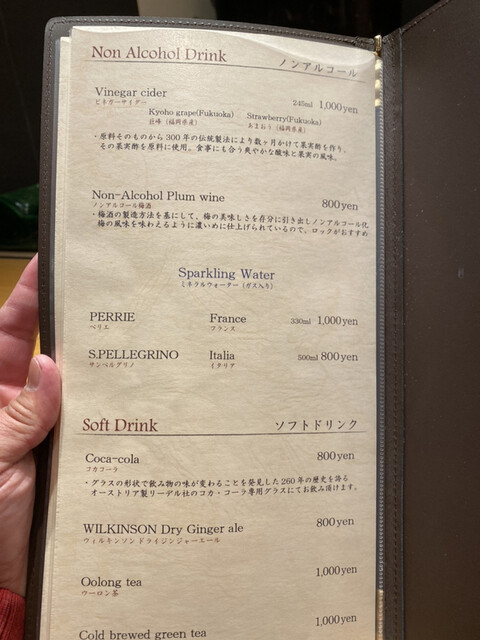 Non Alcohol Drink ノンアルコール
Vinegar cider 245ml 1,000yen
ビネガーサイダー
Kyoho grape(Fukuoka) Strawberry(Fukuoka)
巨峰（福岡県産） あまおう（福岡県産）
・原料そのものから300年の伝統製法により数ヶ月かけて果実酢を作り、
その果実酢を原料に使用。食事にも合う爽やかな酸味と果実の風味。
Non-Alcohol Plum wine 800yen
ノンアルコール梅酒
・梅酒の製造方法を基にして、梅の美味しさを存分に引き出しノンアルコール化
梅の風味を味わえるように濃いめに仕上げられているので、ロックがおすすめ
Sparkling Water
ミネラルウォーター（ガス入り）
PERRIE France 330ml 1,000yen
ペリエ フランス
S.PELLEGRINO Italia 500ml 800yen
サンペルグリノ イタリア
Soft Drink ソフトドリンク
Coca-cola 800yen
コカコーラ
・グラスの形状で飲み物の味が変わることを発見した260年の歴史を誇る
オーストリア製リーデル社のコカ・コーラ専用グラスにてお飲み頂けます。
WILKINSON Dry Ginger ale 800yen
ウィルキンソンドライジンジャーエール
Oolong tea 1,000yen
ウーロン茶
Cold brewed green tea 1,000yen